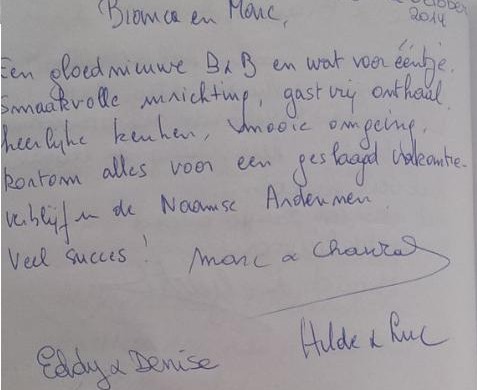 Bianca en Marc,
October
2014
Een gloednieuwe B&B en wat voor ééntje.
Smaakvolle inrichting, gastvrij onthaal,
heerlijke keuken, mooie omgeving,
kortom alles voor een geslaagd vakantie-
verblijf in de Naamse Ardennen.
Veel succes!
Marc & Chantal
Hilde & Luc
Eddy & Denise